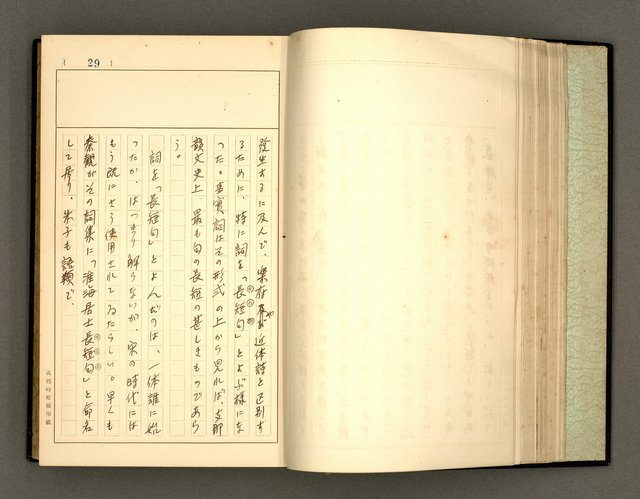 ( 29 )
発生するに及んで、楽府及び近体詩と区別す
るために、特に詞を「長短句」とよぶ様にな
つた。事実詞はその形式の上から見れば、支那
韻文史上、最も句の長短の甚しきものであら
う。
詞を「長短句」とよんだのは、一体誰に始
つたか、はつきり解らないが、宋の時代には
もう既にさう使用されてゐたらしい。早くも
秦観がその詞集に「淮海居士長短句」と命名
して居り、朱子も語類で、
黃得時原稿用紙